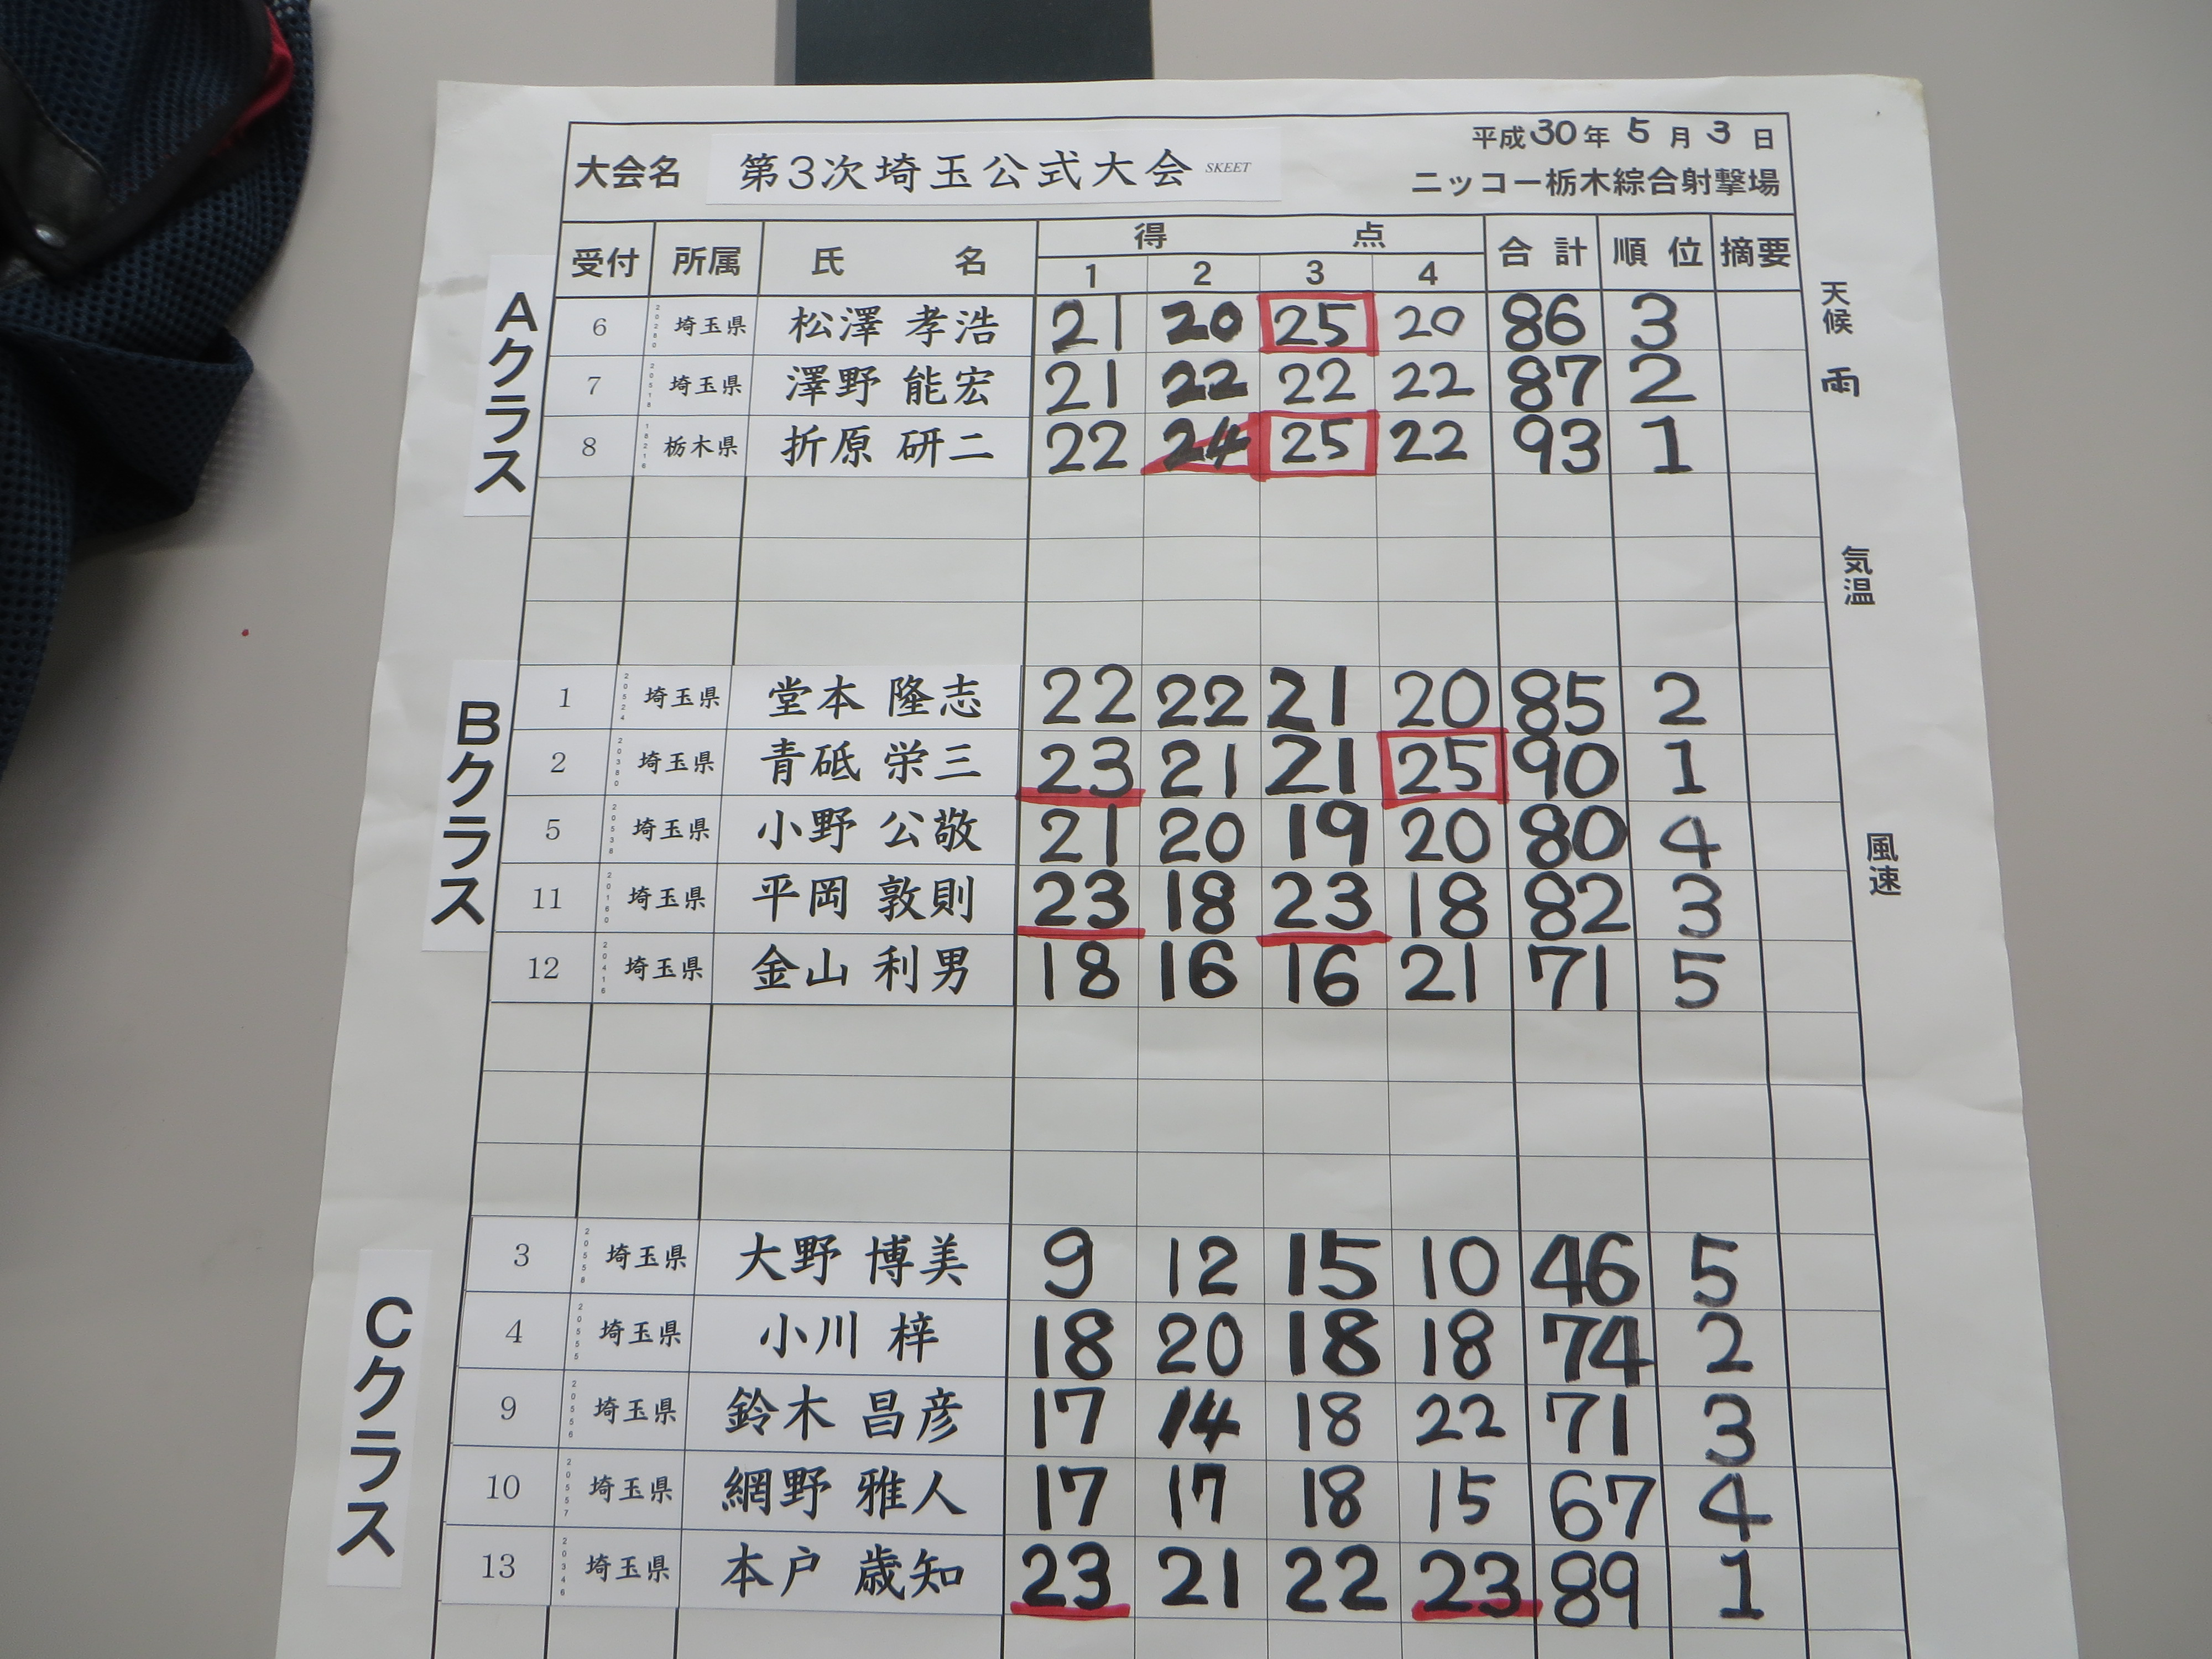 平成30年 5月 3日
大会名 第3次埼玉公式大会 SKEET
ニッコー栃木綜合射撃場
受付 所属 氏 名 得 点 合計 順位 摘要
1 2 3 4
Aクラス
6 20280 埼玉県 松澤 孝浩 21 20 25 20 86 3
7 20518 埼玉県 澤野 能宏 21 22 22 22 87 2
8 18216 栃木県 折原 研二 22 24 25 22 93 1
Bクラス
1 20524 埼玉県 堂本 隆志 22 22 21 20 85 2
2 20380 埼玉県 青砥 栄三 23 21 21 25 90 1
5 20538 埼玉県 小野 公敬 21 20 19 20 80 4
11 20160 埼玉県 平岡 敦則 23 18 23 18 82 3
12 20416 埼玉県 金山 利男 18 16 16 21 71 5
Cクラス
3 20558 埼玉県 大野 博美 9 12 15 10 46 5
4 20555 埼玉県 小川 梓 18 20 18 18 74 2
9 20556 埼玉県 鈴木 昌彦 17 14 18 22 71 3
10 20557 埼玉県 網野 雅人 17 17 18 15 67 4
13 20346 埼玉県 本戸 歳知 23 21 22 23 89 1
天候 雨
気温
風速